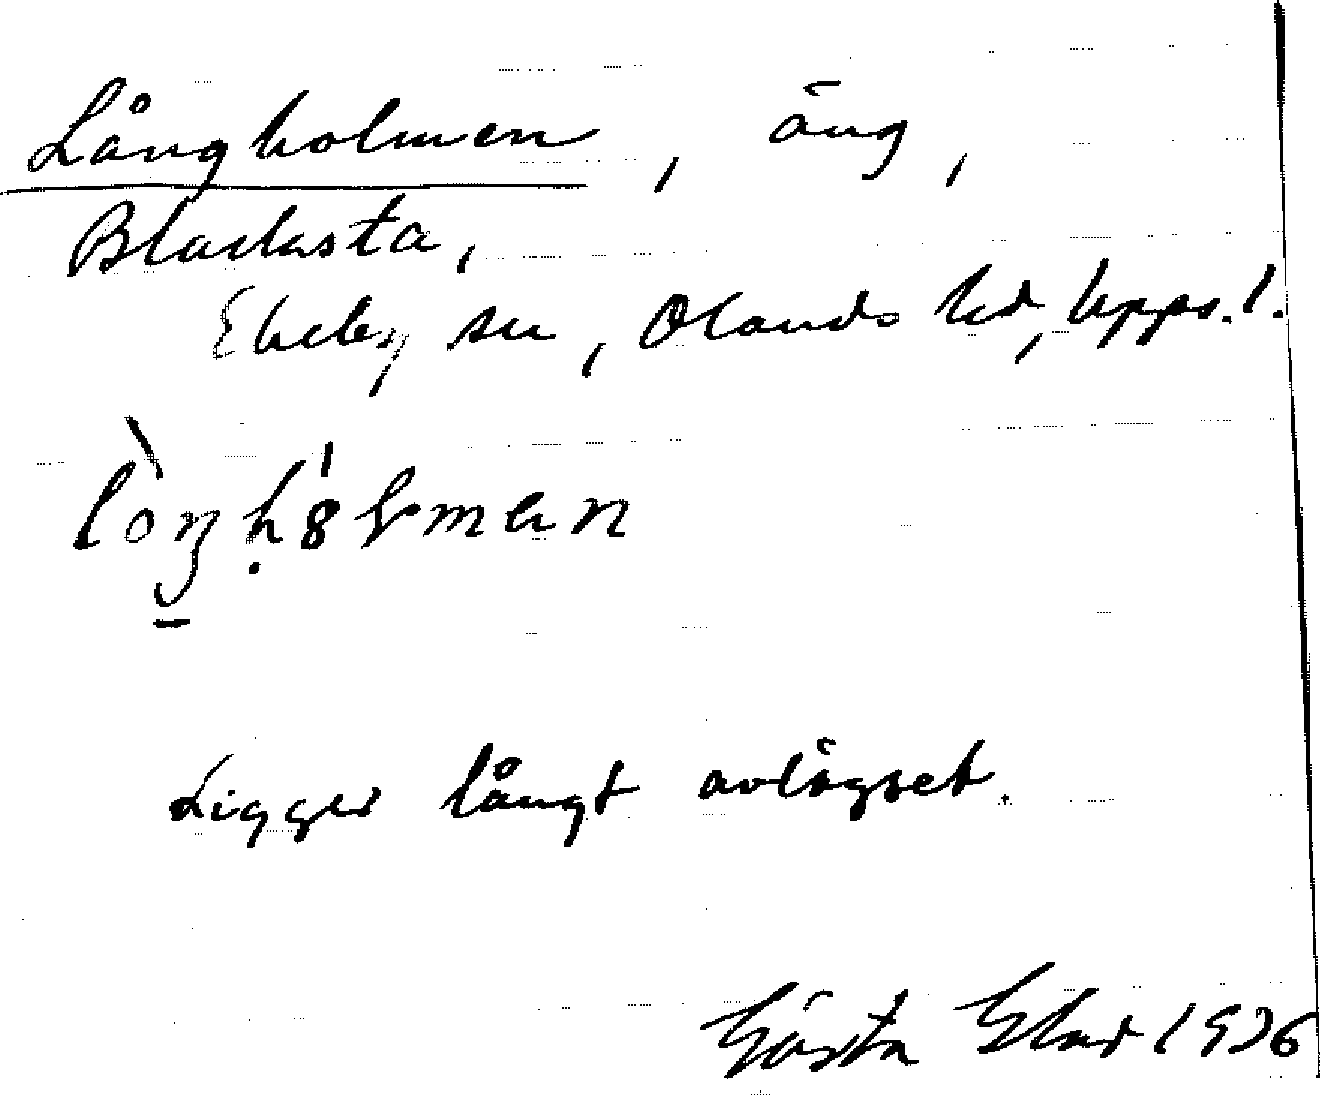 Långholmen, äng,
Blacksta,
Ekeby sn, Olands hd, Upps. l.
Ligger långt avlägset.
Gösta Elad 1936